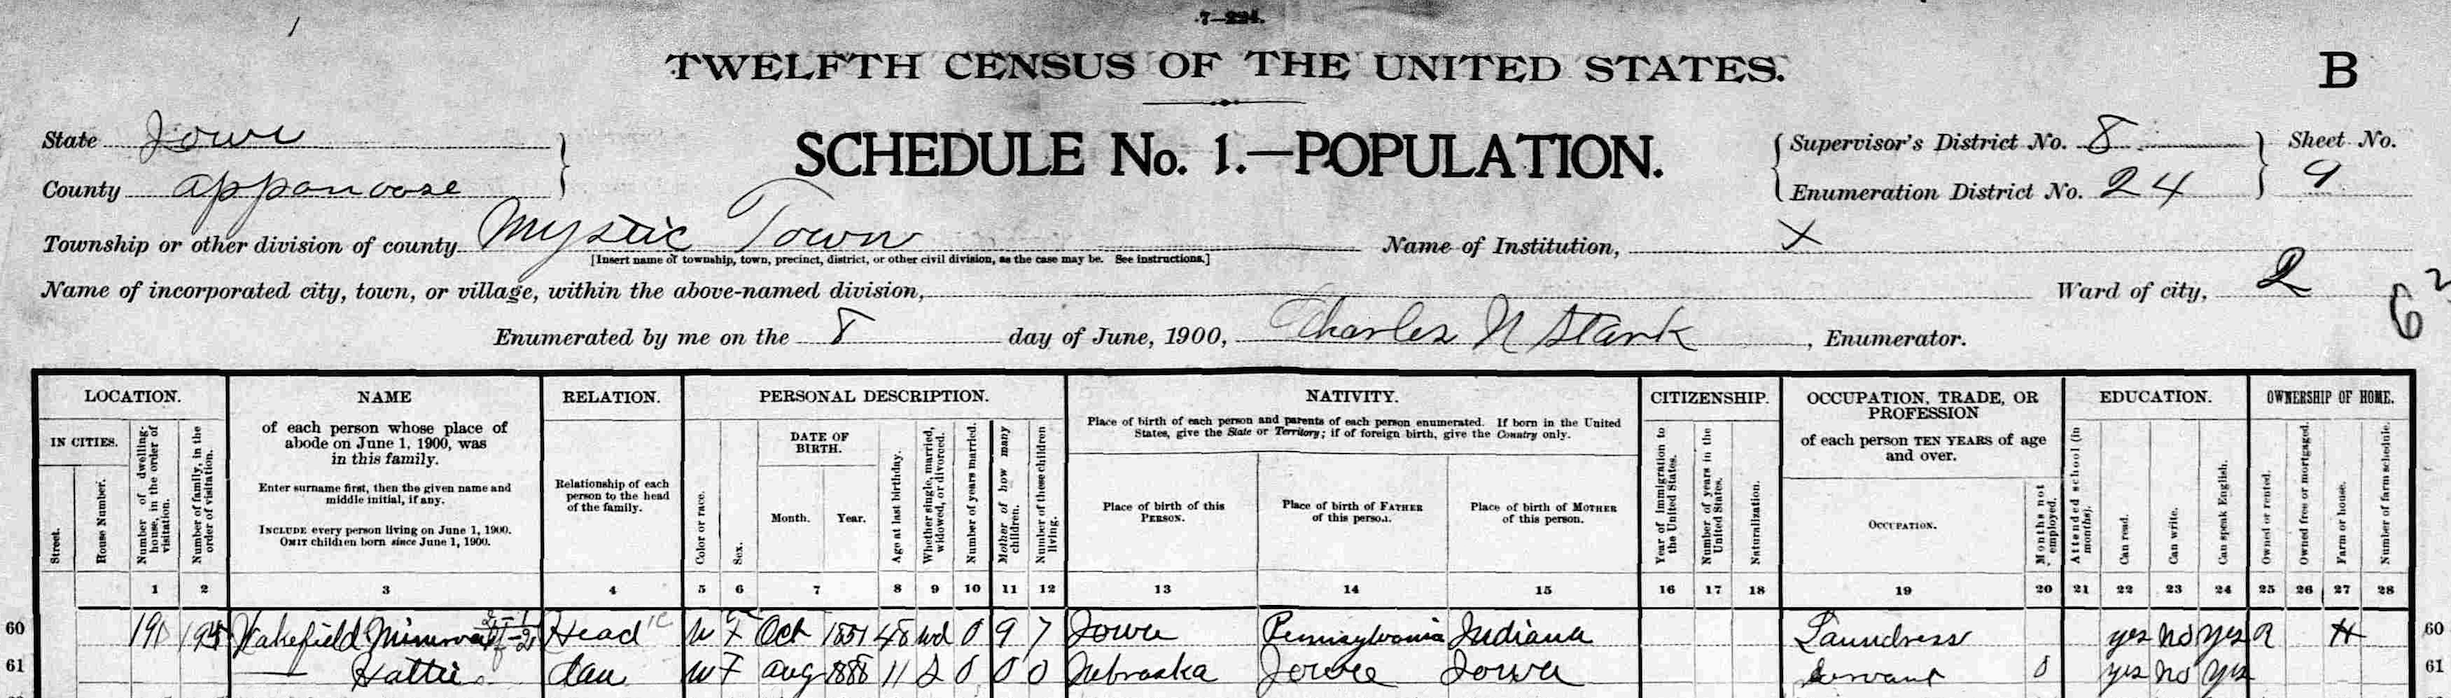 7—224.
TWELFTH CENSUS OF THE UNITED STATES.
B
State Iowa
County Appanoose
SCHEDULE No. 1.—POPULATION.
Supervisor's District No. 8
Enumeration District No. 24
Sheet No.
9
Township or other division of county Mystic Town
Name of Institution, X
[Insert name of township, town, precinct, district, or other civil division, as the case may be. See instructions.]
Name of incorporated city, town, or village, within the above-named division,
Ward of city, 2
Enumerated by me on the 8 day of June, 1900, Charles N Stark, Enumerator.
LOCATION.
IN CITIES.
Street.
House Number.
Number of dwelling-house, in the order of visitation.
Number of family, in the order of visitation.
NAME
of each person whose place of
abode on June 1, 1900, was
in this family.
Enter surname first, then the given name and
middle initial, if any.
INCLUDE every person living on June 1, 1900.
OMIT children born since June 1, 1900.
RELATION.
Relationship of each
person to the head
of the family.
PERSONAL DESCRIPTION.
Color or race.
Sex.
DATE OF
BIRTH.
Month. Year.
Age at last birthday.
Whether single, married, widowed, or divorced.
Number of years married.
Mother of how many children.
Number of these children living.
NATIVITY.
Place of birth of each person and parents of each person enumerated. If born in the United
States, give the State or Territory; if of foreign birth, give the Country only.
Place of birth of this
PERSON.
Place of birth of FATHER
of this person.
Place of birth of MOTHER
of this person.
CITIZENSHIP.
Year of immigration to the United States.
Number of years in the United States.
Naturalization.
OCCUPATION, TRADE, OR
PROFESSION
of each person TEN YEARS of age
and over.
OCCUPATION.
Months not employed.
EDUCATION.
Attended school (in months).
Can read.
Can write.
Can speak English.
OWNERSHIP OF HOME.
Owned or rented.
Owned free or mortgaged.
Farm or house.
Number of farm schedule.
1 2 3 4 5 6 7 8 9 10 11 12 13 14 15 16 17 18 19 20 21 22 23 24 25 26 27 28
60 195 Wakefield Minerva Head W F Oct 1851 48 wd 0 9 7 Iowa Pennsylvania Indiana Laundress yes no yes R H 60
61 — Hattie Dau W F Aug 1888 11 S 0 0 0 Nebraska Iowa Iowa Servant 0 yes no yes 61